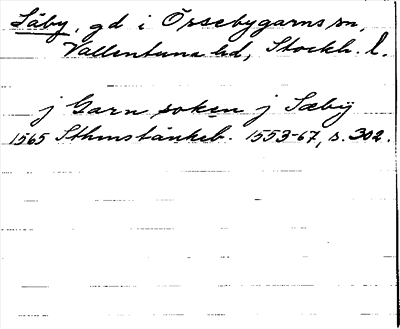 Säby, gd i Össebygarns sn,
Vallentuna hd, Stockh. l.
j Garn soken j Sæby
1565 Sthmstänkeb. 1553-67, s. 302.